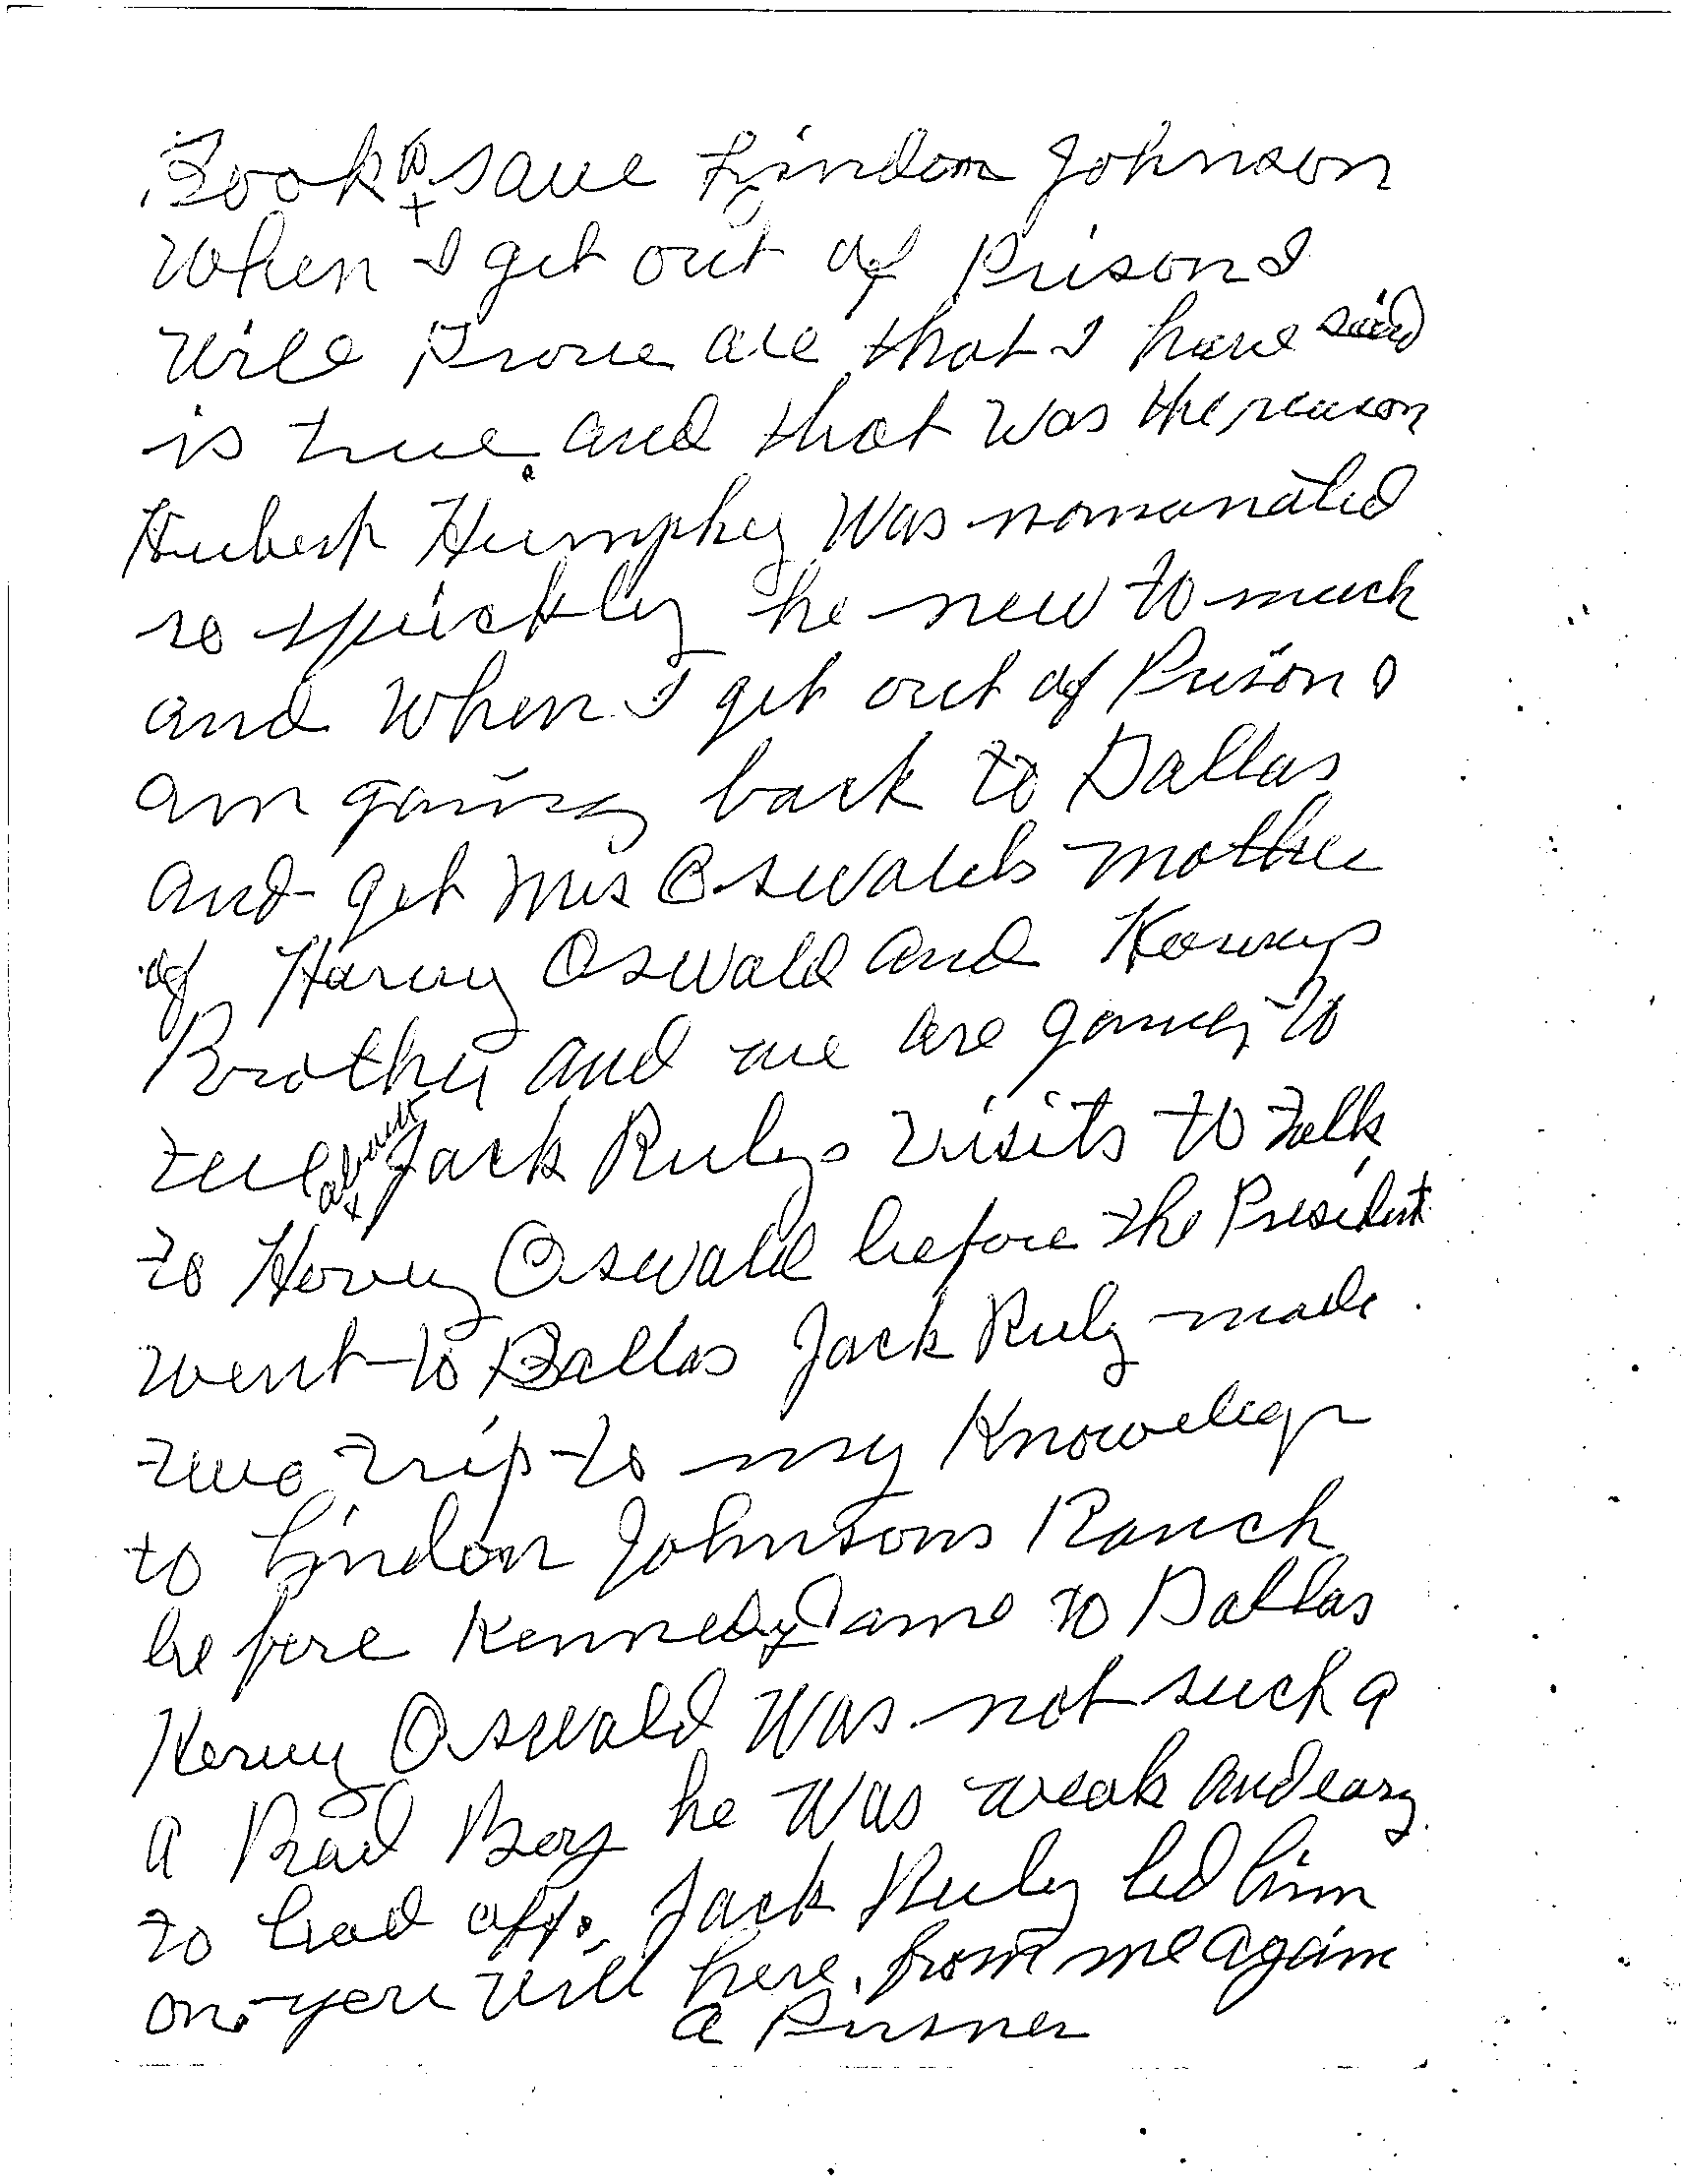 Took to save Lindon Johnson
When I get out of Prison I
Will Prove all that I have said
is true. and that was the reason
Hubert Humphey Was nomanated
so quickly he new to much
and When I get out of Prison I
am going back to Dallas
and get Mrs Oswalds mother
of Harvy Oswald and Harvys
Brother and we are going to
tell about Jack Rubys visits to talk
to Harvy Oswald before the President
went to Dallas Jack Ruby made
two trip to my Knowelege
to Lindon Johnsons Ranch
before Kennedy Came to Dallas
Harvy Oswald Was not such a
a Bad Boy he Was weak and easy
to lead off. Jack Ruby led him
on. you will here from me again
a Prisner